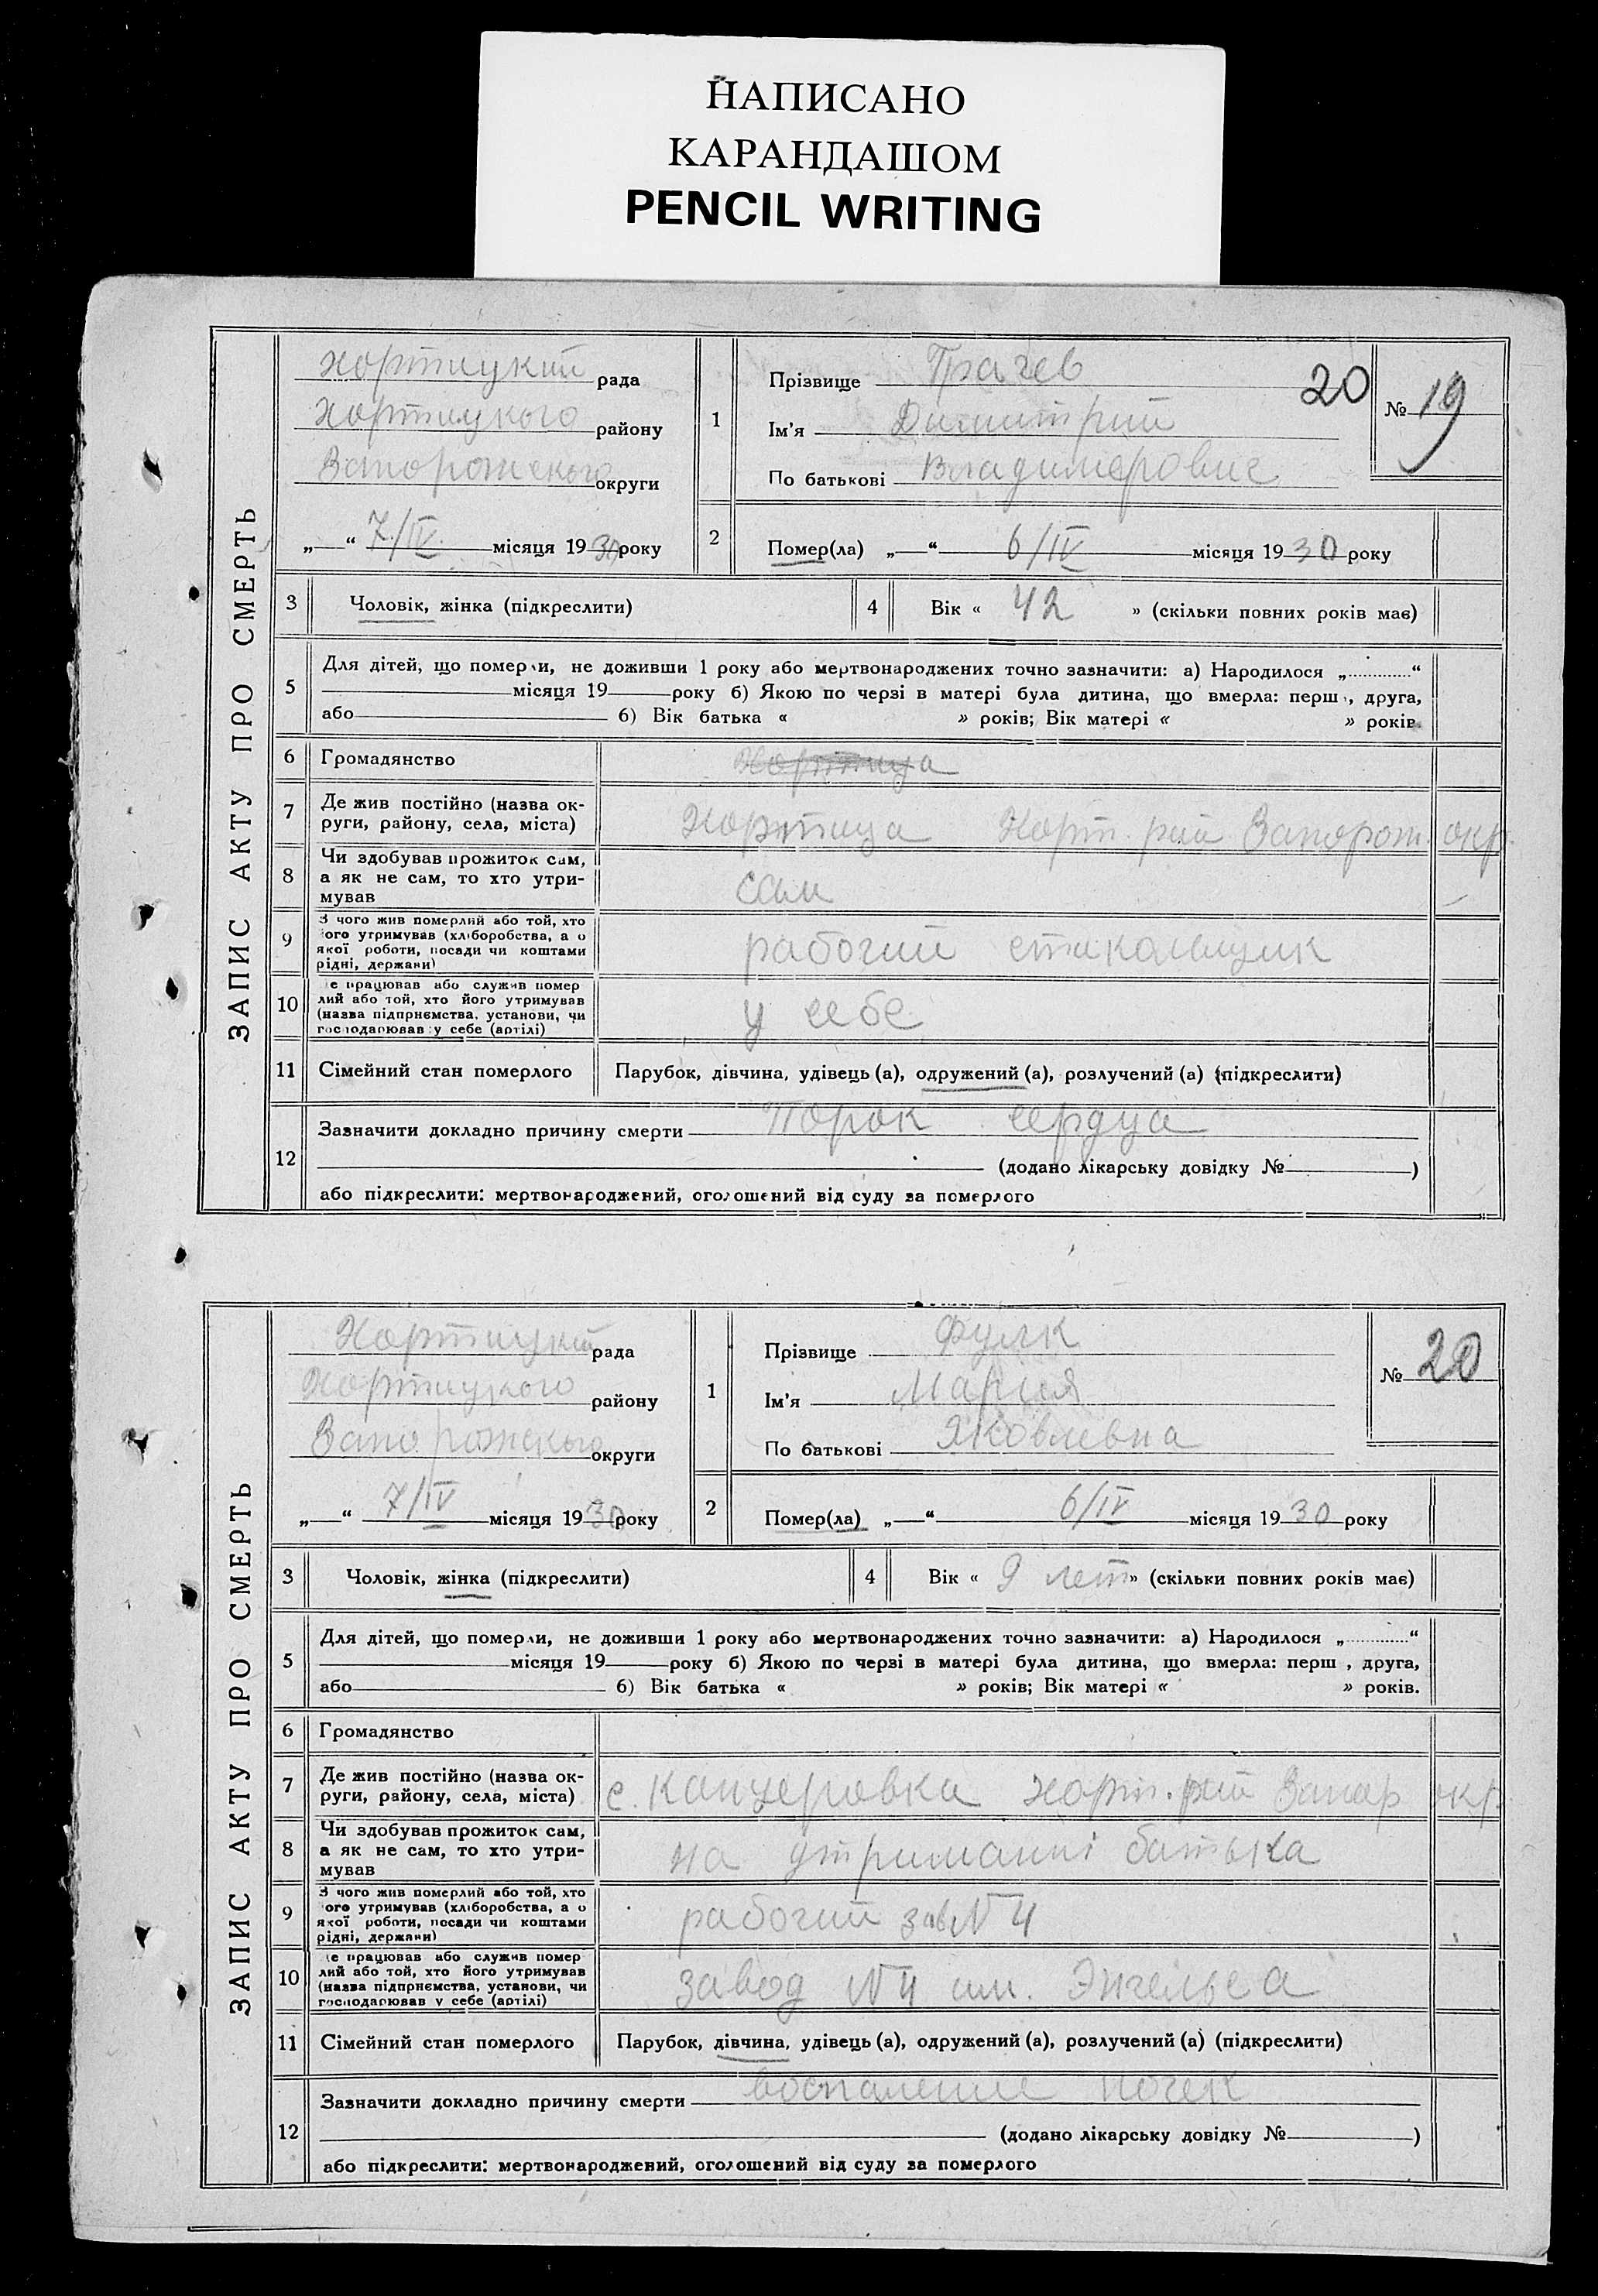 НАПИСАНО
КАРАНДАШОМ
PENCIL WRITING
ЗАПИС АКТУ ПРО СМЕРТЬ
Хортицкий рада
Хортицкого району
Запорожского округи
„—“ 7/IV місяця 1930 року
1
Прізвище Грачев
Ім'я Димитрий
По батькові Владимерович
20
№ 19
2
Помер(ла) „—“ 6/IV місяця 1930 року
3 Чоловік, жінка (підкреслити)
4 Вік « 42 » (скільки повних років має)
5
Для дітей, що померли, не доживши 1 року або мертвонароджених точно зазначити: а) Народилося „............“
місяця 19 року б) Якою по черзі в матері була дитина, що вмерла: перш , друга,
або б) Вік батька « » років; Вік матері « » років.
6 Громадянство Хортица
7 Де жив постійно (назва ок-
руги, району, села, міста)
Хортица Хорт. рай Запорож. окр.
8 Чи здобував прожиток сам,
а як не сам, то хто утри-
мував
сам
9 З чого жив померлий або той, хто
його утримував (хліборобства, а о
якої роботи, посади чи коштами
рідні, держави)
рабочий стикольщик
10 е працював або служив помер
лий або той, хто його утримував
(назва підприємства, установи, чи
господарював у себе (артілі)
у себе
11 Сімейний стан померлого Парубок, дівчина, удівець (а), одружений (а), розлучений (а) (підкреслити)
12 Зазначити докладно причину смерти Порок сердца
(додано лікарську довідку № )
або підкреслити: мертвонароджений, оголошений від суду за померлого
ЗАПИС АКТУ ПРО СМЕРТЬ
Хортицкий рада
Хортицкого району
Запорожского округи
„—“ 7/IV місяця 1930 року
1
Прізвище Функ
Ім'я Мария
По батькові Яковлевна
№ 20
2
Помер(ла) „—“ 6/IV місяця 1930 року
3 Чоловік, жінка (підкреслити)
4 Вік « 9 лет » (скільки повних років має)
5
Для дітей, що померли, не доживши 1 року або мертвонароджених точно зазначити: а) Народилося „............“
місяця 19 року б) Якою по черзі в матері була дитина, що вмерла: перш , друга,
або б) Вік батька « » років; Вік матері « » років.
6 Громадянство
7 Де жив постійно (назва ок-
руги, району, села, міста)
с. Канцеровка хорт. рай Запор окр.
8 Чи здобував прожиток сам,
а як не сам, то хто утри-
мував
на утриманні батька
9 З чого жив померлий або той, хто
ого утримував (хліборобства, а о
якої роботи, посади чи коштами
рідні, держави)
рабочий зав N 4
10 е працював або служив помер
лий або той, хто його утримував
(назва підприємства, установи, чи
господарював у себе (артілі)
завод N 4 им. Энгельса
11 Сімейний стан померлого Парубок, дівчина, удівець (а), одружений (а), розлучений (а) (підкреслити)
12 Зазначити докладно причину смерти воспаление почек
(додано лікарську довідку № )
або підкреслити: мертвонароджений, оголошений від суду за померлого